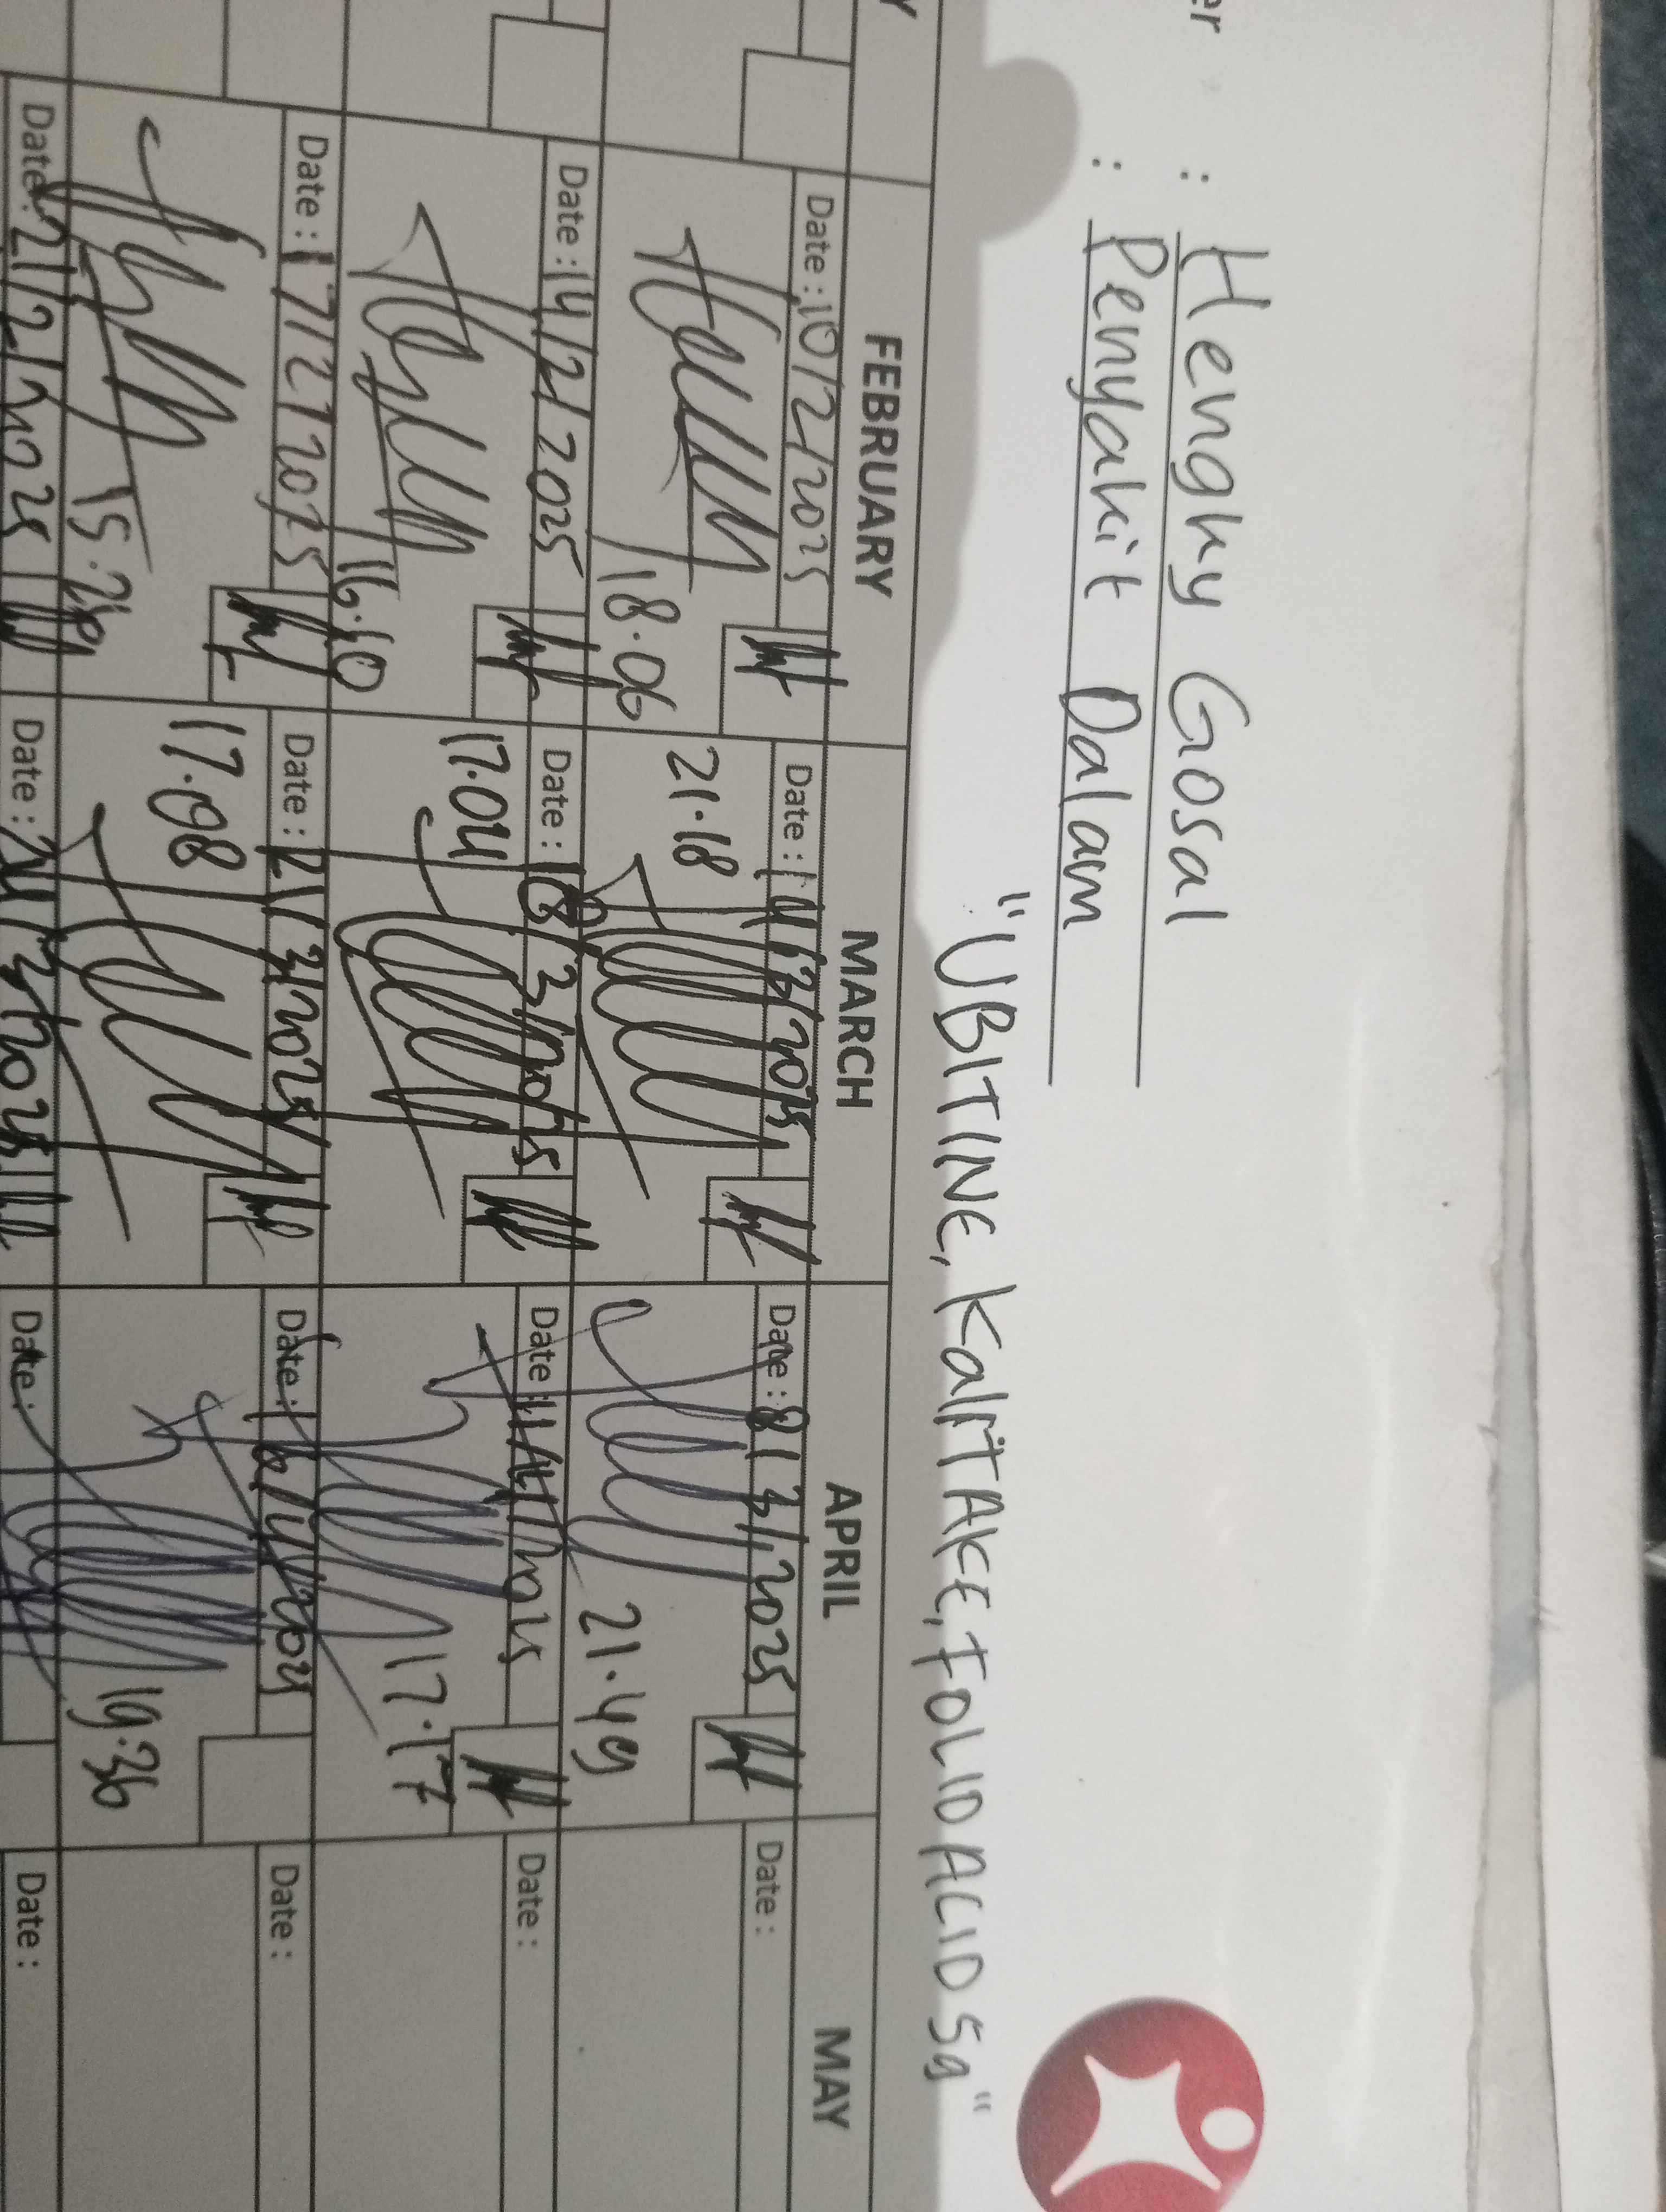 er : Henghy Gosal
: Penyakit Dalam
"UBITINE, KalitAKE, FOLIDACID 5g"
Y FEBRUARY MARCH APRIL MAY
Date : 10/2/2025 Date : 14/3/2025 Date : 8/3/2025 Date :
18.06 21.18 21.49
Date : 14/2/2025 Date : 18/3/2025 Date : 11/4/2025 Date :
16.10 17.04 17.17
Date : 17/2/2025 Date : 21/3/2025 Date : Date :
17.08 19.36
Date : 21/2/2025 Date : Date : Date :